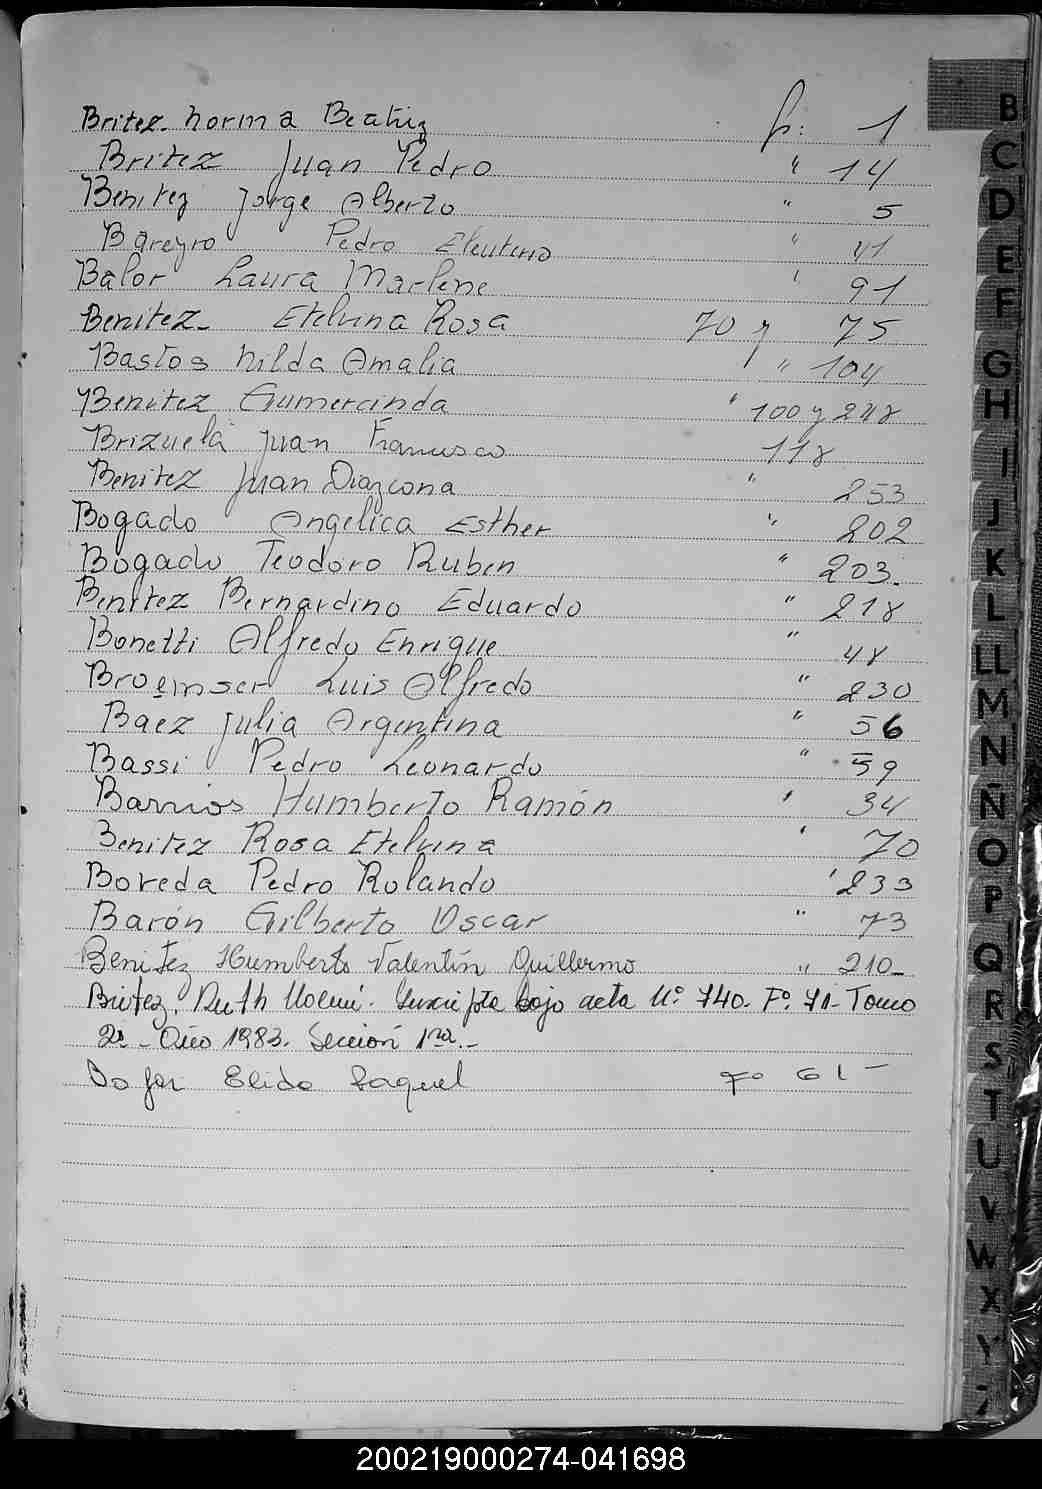 Britez. Norma Beatriz fs: 1
Britez Juan Pedro " 14
Benitez Jorge Alberto " 5
Bareyro Pedro Eleuterio " 41
Balor Laura Marlene " 91
Benitez- Etelvina Rosa 70 y 75
Bastos Nilda Amalia " 104
Benitez Gumercinda " 100 y 248
Brizuela Juan Francisco 118
Benitez Juan Diazcona " 253
Bogado Angelica Esther " 202
Bogado Teodoro Ruben " 203.
Benitez Bernardino Eduardo " 218
Bonetti Alfredo Enrique " 48
Broemser Luis Alfredo " 230
Baez Julia Argentina " 56
Bassi Pedro Leonardo " 59
Barrios Humberto Ramón " 34
Benitez Rosa Etelvina " 70
Boveda Pedro Rolando " 233
Barón Gilberto Oscar " 73
Benitez Humberto Valentín Guillermo " 210-
Britez, Ruth Noemí. Inscripta bajo acta Nº 740. Fº 71- Tomo
2º - Año 1983. Sección 1ra.-
Elida Raquel Fº 61 -
B
C
D
E
F
G
H
I
J
K
L
LL
M
N
Ñ
O
P
Q
R
S
T
U
V
W
X
Y
Z
200219000274-041698